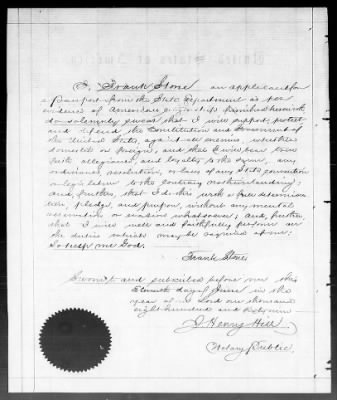 United States of America
I, Frank Stone an applicant for
a Passport from the State Department as per
evidence of American citizenship furnished herewith
do solemnly swear that I will support, protect
and defend the Constitution and Government of
the United States, against all enemies, whether
domestic or foreign, and that I will bear true
faith, allegiance, and loyalty to the same, any
ordinance, resolution, or law of any State convention
or legislature to the contrary notwithstanding;
and, further, that I do this with a full determina
tion, pledge, and purpose, without any mental
reservation or evasion whatsoever; and, further,
that I will well and faithfully perform all
the duties which may be required of me;
So help me God.
Frank Stone
Sworn to and subscribed before me this
Eleventh day of June in the
year of our Lord one thousand
eight hundred and
J. Henry Hill
Notary Public.